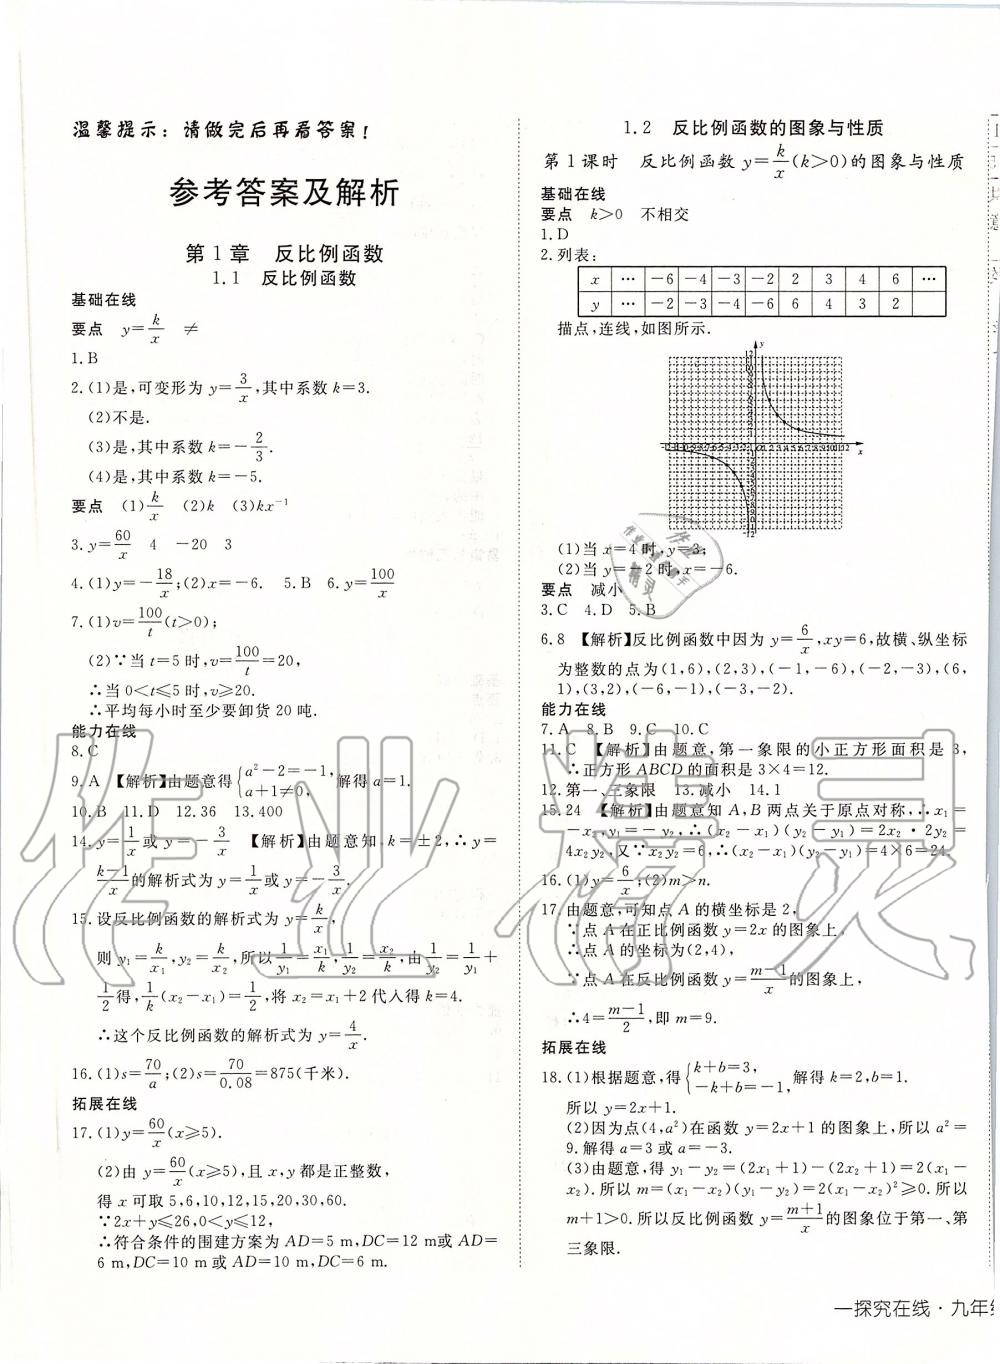 温馨提示：请做完后再看答案！
参考答案及解析
第1章 反比例函数
1.1 反比例函数
基础在线
要点 y=k/x ≠
1.B
2.(1)是,可变形为 y=3/x,其中系数 k=3.
(2)不是.
(3)是,其中系数 k=-2/3.
(4)是,其中系数 k=-5.
要点 (1)k/x (2)k (3)kx⁻¹
3.y=60/x 4 -20 3
4.(1)y=-18/x;(2)x=-6. 5.B 6.y=100/x
7.(1)v=100/t(t>0);
(2)∵当 t=5 时,v=100/t=20,
∴当 0<t≤5 时,v≥20.
∴平均每小时至少要卸货 20 吨.
能力在线
8.C
9.A 【解析】由题意得{a²-2=-1, a+1≠0. 解得 a=1.
10.B 11.D 12.36 13.400
14.y=1/x或 y=-3/x 【解析】由题意知,k=±2,∴y=
k-1/x的解析式为 y=1/x或 y=-3/x.
15.设反比例函数的解析式为 y=k/x,
则 y₁=k/x₁,y₂=k/x₂,所以1/y₁=x₁/k,1/y₂=x₂/k,由1/y₂=1/y₁+
1/2得,1/k(x₂-x₁)=1/2,将 x₂=x₁+2代入得 k=4.
∴这个反比例函数的解析式为 y=4/x.
16.(1)s=70/a;(2)s=70/0.08=875(千米).
拓展在线
17.(1)y=60/x(x≥5).
(2)由 y=60/x(x≥5),且 x,y 都是正整数,
得 x 可取 5,6,10,12,15,20,30,60.
∵2x+y≤26,0<y≤12,
∴符合条件的围建方案为 AD=5 m,DC=12 m或 AD=
6 m,DC=10 m 或 AD=10 m,DC=6 m.
1.2 反比例函数的图象与性质
第1课时 反比例函数 y=k/x(k>0)的图象与性质
基础在线
要点 k>0 不相交
1.D
2.列表:
x … -6 -4 -3 -2 2 3 4 6 …
y … -2 -3 -4 -6 6 4 3 2
描点,连线,如图所示.
(1)当 x=4 时,y=3;
(2)当 y=-2 时,x=-6.
要点 减小
3.C 4.D 5.B
6.8 【解析】反比例函数中因为 y=6/x,xy=6,故横、纵坐标
为整数的点为(1,6),(2,3),(-1,-6),(-2,-3),(6,
1),(3,2),(-6,-1),(-3,-2).
能力在线
7.A 8.B 9.C 10.C
11.C 【解析】由题意,第一象限的小正方形面积是 3,
∴正方形 ABCD 的面积是 3×4=12.
12.第一、三象限 13.减小 14.1
15.24 【解析】由题意知 A,B 两点关于原点对称,∴x₁=
-x₂,y₁=-y₂,∴(x₂-x₁)(y₂-y₁)=2x₂·2y₂=
4x₂y₂,又∵x₂y₂=6,∴(x₂-x₁)(y₂-y₁)=4×6=24.
16.(1)y=6/x;(2)m>n.
17.由题意,可知点 A 的横坐标是 2,
∵点 A 在正比例函数 y=2x 的图象上,
∴点 A 的坐标为(2,4),
∵点 A 在反比例函数 y=m-1/x的图象上,
∴4=m-1/2,即 m=9.
拓展在线
18.(1)根据题意,得{k+b=3, -k+b=-1, 解得 k=2,b=1.
所以 y=2x+1.
(2)因为点(4,a²)在函数 y=2x+1 的图象上,所以 a²=
9.解得 a=3 或 a=-3.
(3)由题意,得 y₁-y₂=(2x₁+1)-(2x₂+1)=2(x₁-
x₂).所以 m=(x₁-x₂)(y₁-y₂)=2(x₁-x₂)²≥0.所以
m+1>0.所以反比例函数 y=m+1/x的图象位于第一、第
三象限.
一探究在线·九年级
作业精灵